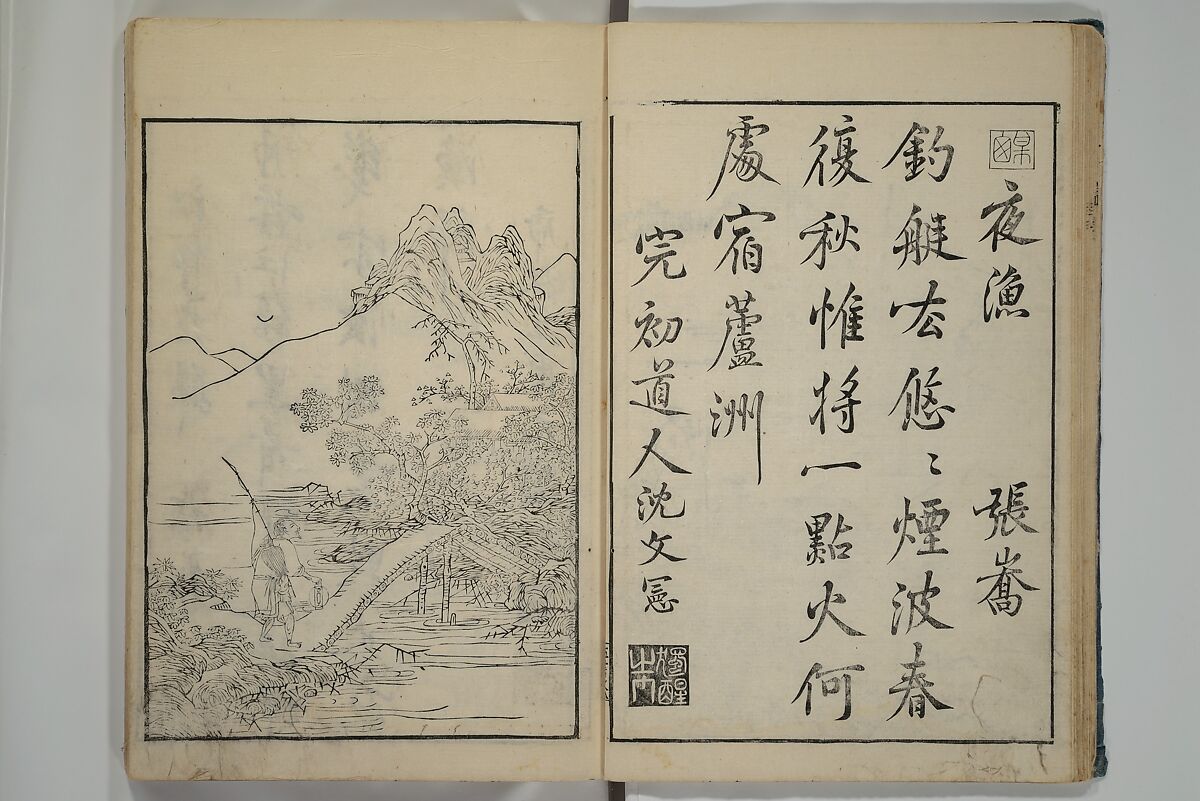 夜漁　張喬
釣艇去悠〻煙波春
復秋惟將一點火何
處宿蘆洲
完初道人沈文憲